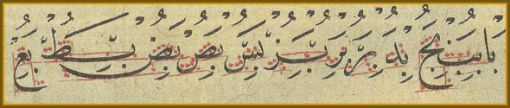 با بب بج بد بر بز بس بص بض بط بع